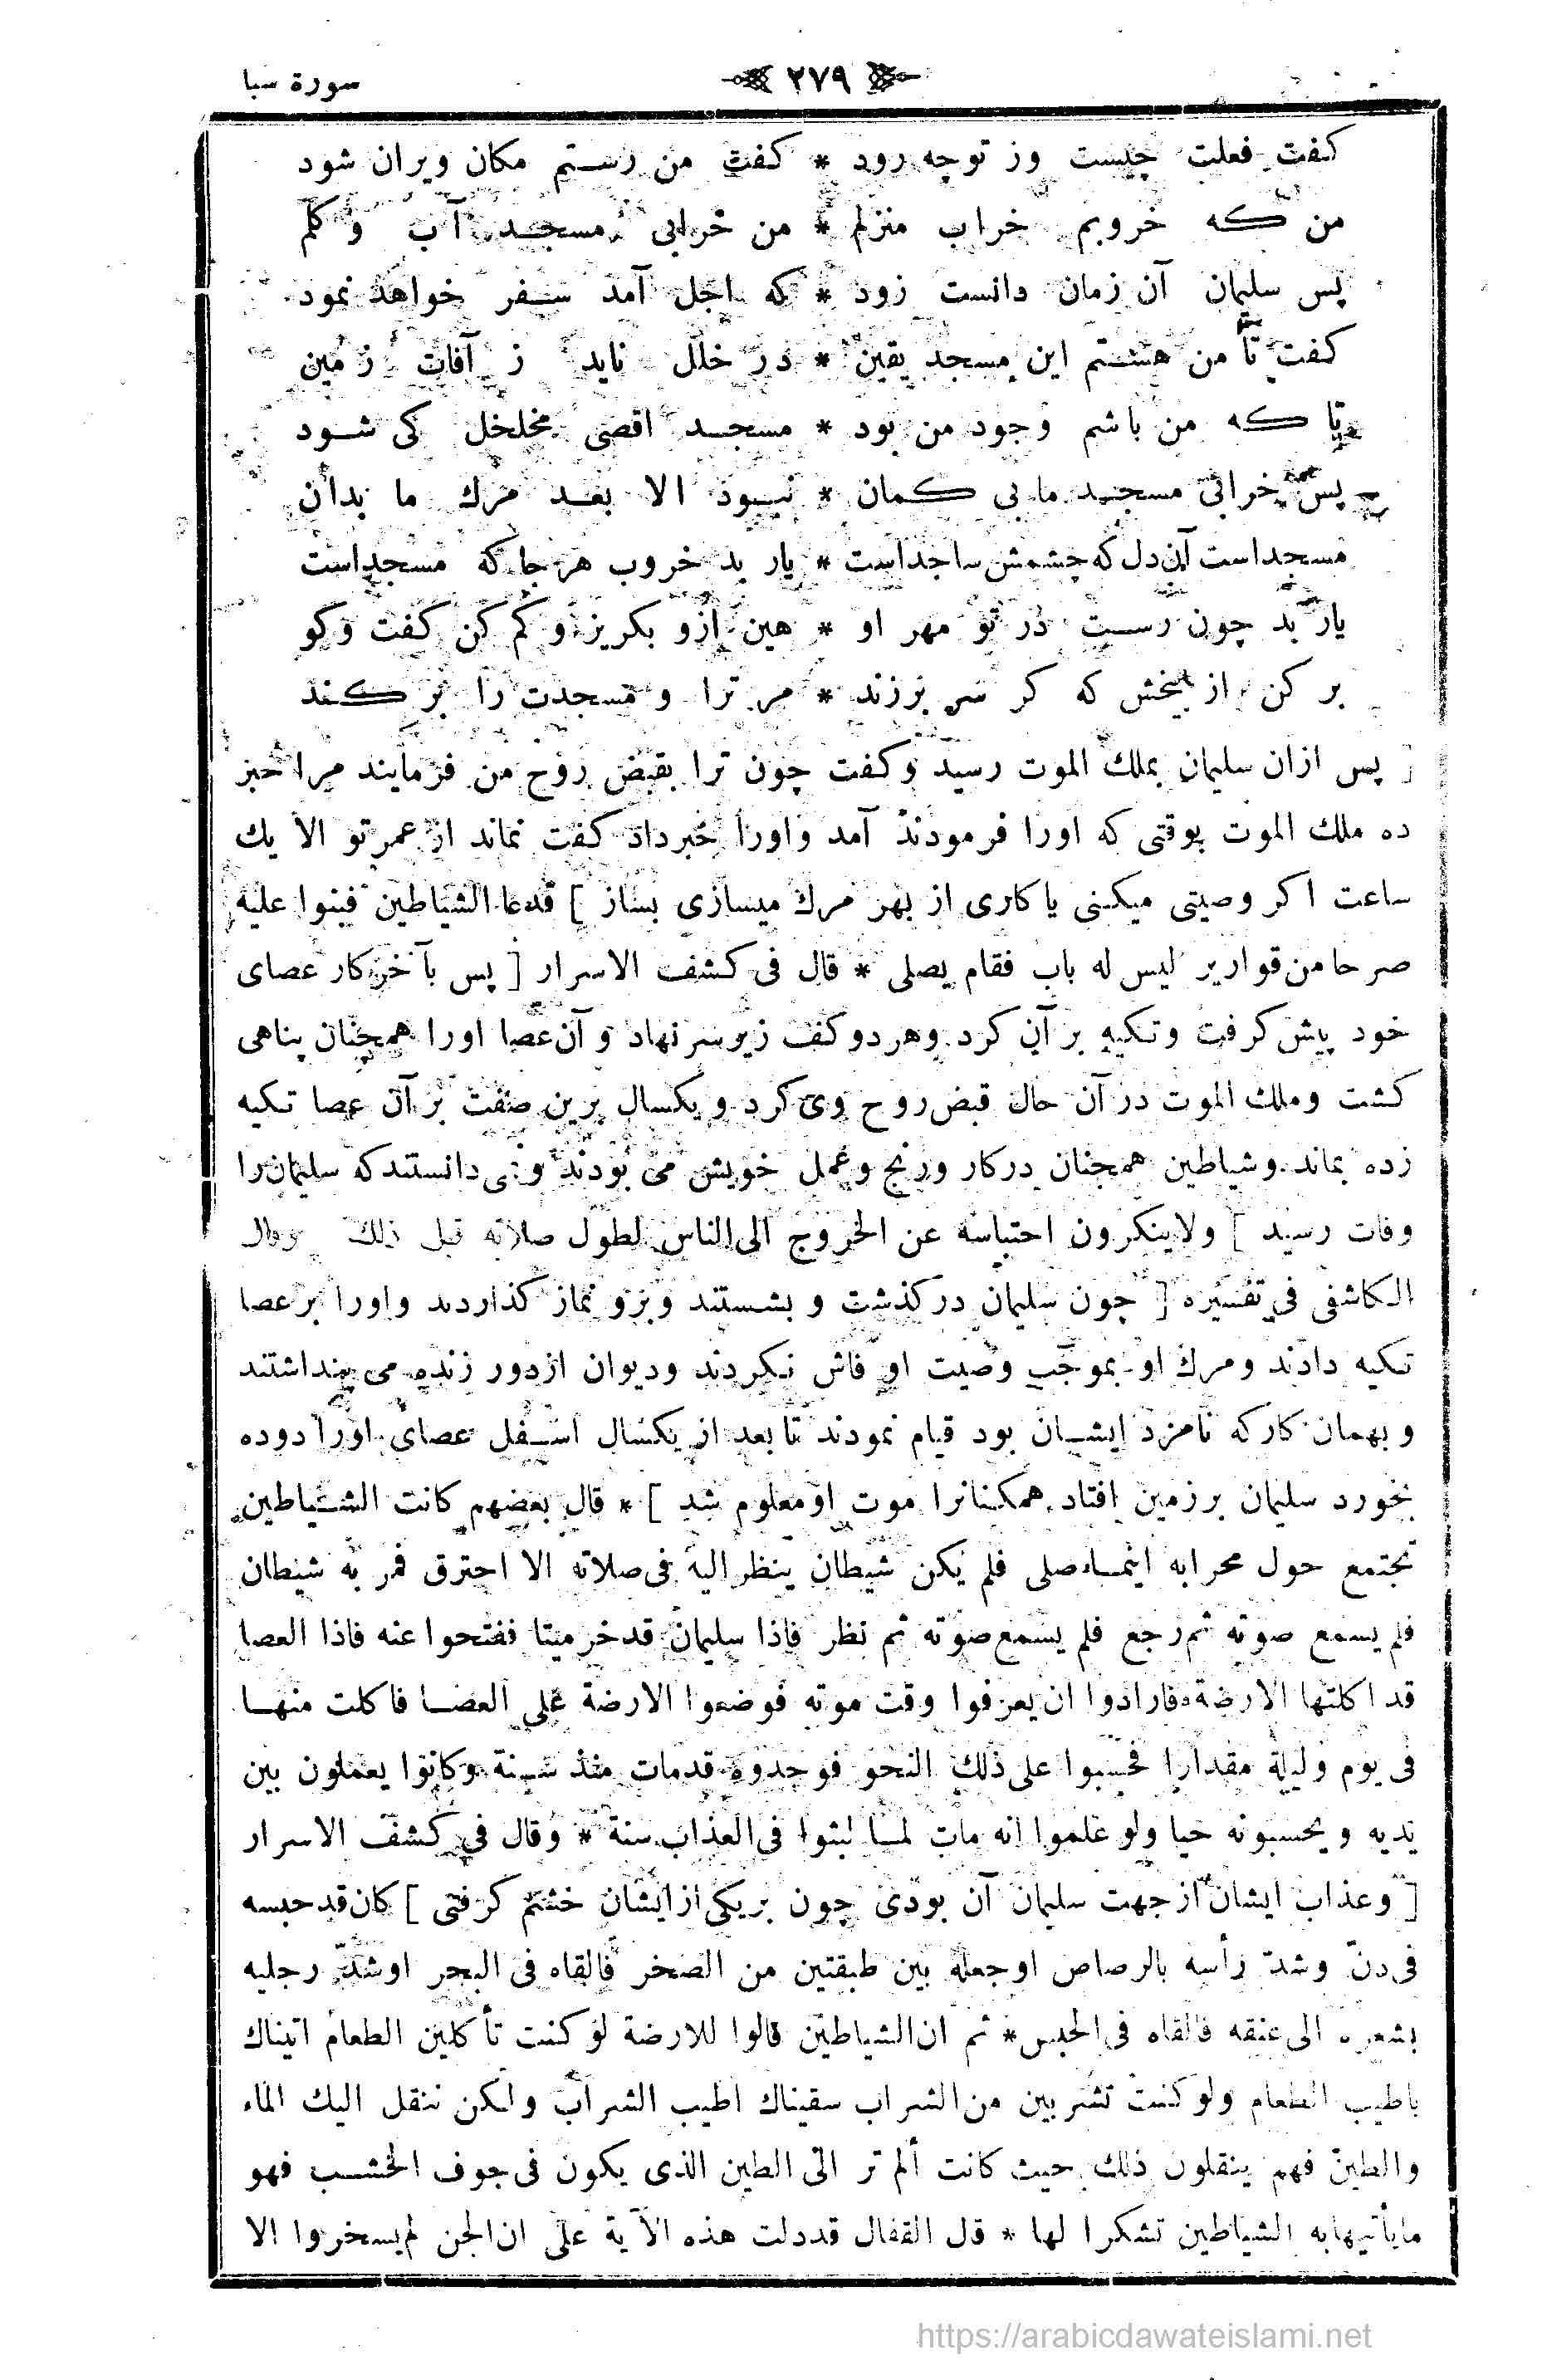 سورة سبا
٢٧٩
كفت فعلت چیست وز توچه رود * كفت من رستم مكان ویران شود
من كه خروبم خراب منزلم * من خرابی مسجد آب وكلم
پس سلیمان آن زمان دانست زود * كه اجل آمد سفر خواهد نمود
كفت تا من هستم این مسجد یقین * در خلل ناید ز آفات زمین
تا كه من باشم وجود من بود * مسجد اقصی مخلخل كی شود
پس خرابی مسجد ما بی كمان * نبود الا بعد مرك ما بدان
مسجداست آن دل كه چشمش ساجداست * یار بد خروب هرجا كه مسجداست
یار بد چون رست در تو مهر او * هین ازو بكریز وكم كن كفت وكو
بر كن از بیخش كه كر سر برزند * مر ترا و مسجدت را بر كند
[ پس ازان سلیمان بملك الموت رسید وكفت چون ترا بقبض روح من فرمایند مرا خبر
ده ملك الموت بوقتی كه اورا فرمودند آمد واورا خبر داد كفت نماند از عمر تو الا یك
ساعت اكر وصیتی میكنی یا كاری از بهر مرك میسازی بساز ] فدعا الشیاطین فبنوا علیه
صرحا من قواریر لیس له باب فقام یصلی * قال فی كشف الاسرار [ پس بآخر كار عصای
خود پیش كرفت وتكیه بر آن كرد وهر دو كف زیر سر نهاد و آن عصا اورا همچنان پناهی
كشت وملك الموت در آن حال قبض روح وی كرد ویكسال برین صفت بر آن عصا تكیه
زده بماند وشیاطین همچنان دركار ورنج وعمل خویش می بودند و نمی دانستند كه سلیمان را
وفات رسید ] ولاینكرون احتباسه عن الخروج الی الناس لطول صلاته قبل ذلك وقال
الكاشفی فی تفسیره [ چون سلیمان در كذشت و بشستند وبرو نماز كذاردند واورا بر عصا
تكیه دادند ومرك او بموجب وصیت او فاش نكردند ودیوان ازدور زنده می پنداشتند
و بهمان كار كه نامزد ایشان بود قیام نمودند تا بعد از یكسال اسفل عصای اورا دوده
بخورد سلیمان بر زمین افتاد همكنانرا موت او معلوم شد ] * قال بعضهم كانت الشیاطین
تجتمع حول محرابه اینما صلی فلم یكن شیطان ینظر الیه فی صلاته الا احترق فمر به شیطان
فلم یسمع صوته ثم رجع فلم یسمع صوته ثم نظر فاذا سلیمان قد خر میتا ففتحوا عنه فاذا العصا
قد اكلتها الارضة فارادوا ان یعرفوا وقت موته فوضعوا الارضة علی العصا فاكلت منها
فی یوم ولیلة مقدارا فحسبوا علی ذلك النحو فوجدوه قدمات منذ سنة وكانوا یعملون بین
یدیه ویحسبونه حیا ولو علموا انه مات لما لبثوا فی العذاب سنة * وقال فی كشف الاسرار
[ وعذاب ایشان از جهت سلیمان آن بودی چون بریكی از ایشان خشم كرفتی ] كان قد حبسه
فی دنّ وشدّ رأسه بالرصاص اوجعله بین طبقتین من الصخر فألقاه فی البحر اوشدّ رجلیه
بشعره الی عنقه فألقاه فی الحبس * ثم ان الشیاطین قالوا للارضة لوكنت تأكلین الطعام اتیناك
باطیب الطعام ولو كنت تشربین من الشراب سقیناك اطیب الشراب ولكن ننقل الیك الماء
والطین فهم ینقلون ذلك حیث كانت ألم تر الی الطین الذی یكون فی جوف الخشب فهو
مایأتیهابه الشیاطین تشكرا لها * قال القفال قد دلت هذه الآیة علی ان الجن لم یسخروا الا
https://arabicdawateislami.net